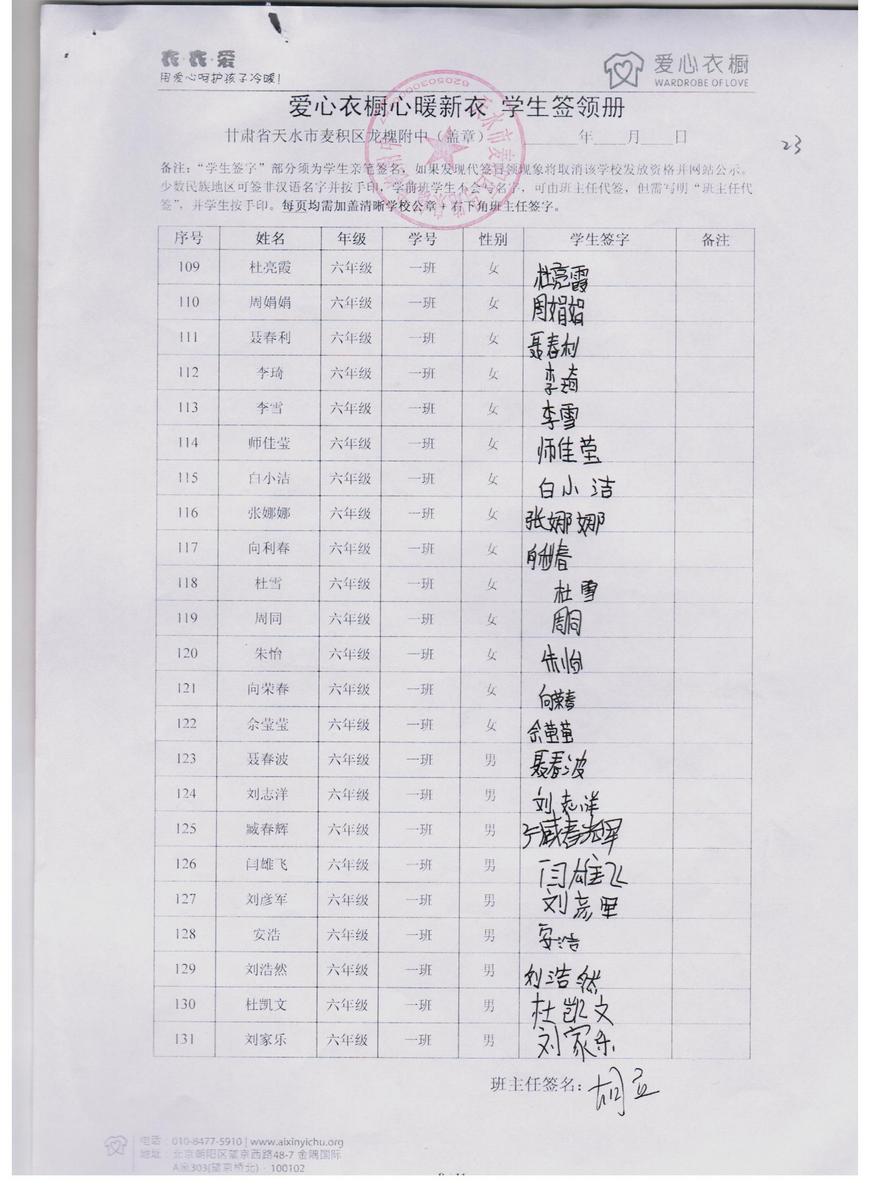 衣·衣·爱
用爱心呵护孩子冷暖!
爱心衣橱
WARDROBE OF LOVE
爱心衣橱心暖新衣 学生签领册
甘肃省天水市麦积区龙槐附中（盖章） 年 月 日
23
备注：“学生签字”部分须为学生亲笔签名，如果发现代签冒领现象将取消该学校发放资格并网站公示。
少数民族地区可签非汉语名字并按手印，学前班学生不会写名字，可由班主任代签，但需写明“班主任代
签”，并学生按手印。每页均需加盖清晰学校公章+右下角班主任签字。
序号 姓名 年级 学号 性别 学生签字 备注
109 杜亮霞 六年级 一班 女 杜亮霞
110 周娟娟 六年级 一班 女 周娟娟
111 聂春利 六年级 一班 女 聂春利
112 李琦 六年级 一班 女 李琦
113 李雪 六年级 一班 女 李雪
114 师佳莹 六年级 一班 女 师佳莹
115 白小洁 六年级 一班 女 白小洁
116 张娜娜 六年级 一班 女 张娜娜
117 向利春 六年级 一班 女 向利春
118 杜雪 六年级 一班 女 杜雪
119 周同 六年级 一班 女 周同
120 朱怡 六年级 一班 女 朱怡
121 向荣春 六年级 一班 女 向荣春
122 佘莹莹 六年级 一班 女 佘莹莹
123 聂春波 六年级 一班 男 聂春波
124 刘志洋 六年级 一班 男 刘志洋
125 臧春辉 六年级 一班 男 臧春辉
126 闫雄飞 六年级 一班 男 闫雄飞
127 刘彦军 六年级 一班 男 刘彦军
128 安浩 六年级 一班 男 安浩
129 刘浩然 六年级 一班 男 刘浩然
130 杜凯文 六年级 一班 男 杜凯文
131 刘家乐 六年级 一班 男 刘家乐
班主任签名：胡立
电话：010-8477-5910 | www.aixinyichu.org
地址：北京朝阳区望京西路48-7 金隅国际
A座303(望京桥北)·100102